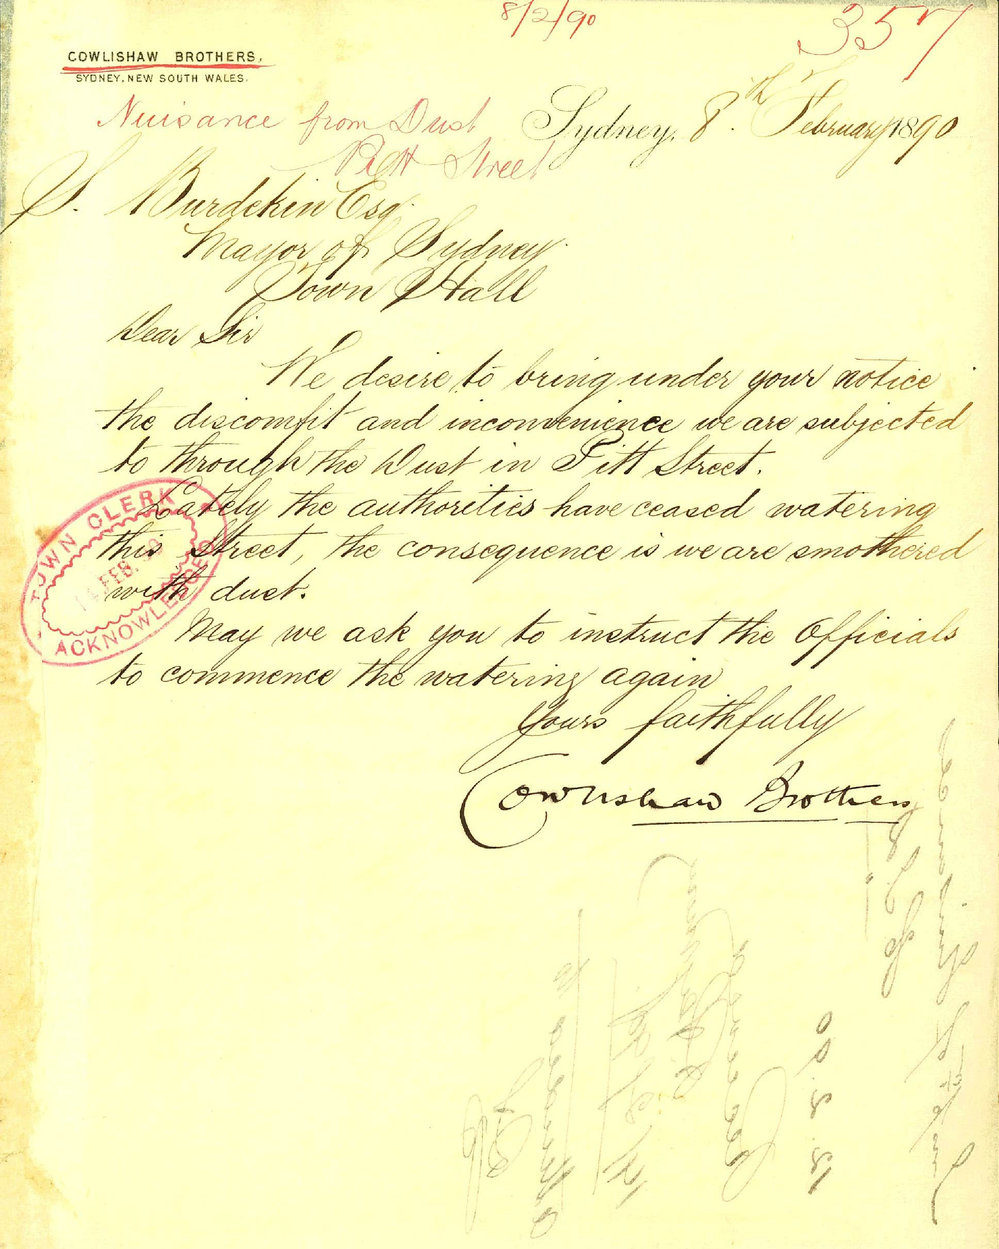 8/2/90
357
COWLISHAW BROTHERS,
SYDNEY, NEW SOUTH WALES.
Nuisance from Dust
Pitt Street
Sydney, 8th February 1890
S. Burdekin Esq.
Mayor of Sydney
Town Hall
Dear Sir
We desire to bring under your notice
the discomfit and inconvenience we are subjected
to through the Dust in Pitt Street.
Lately the authorities have ceased watering
this Street, the consequence is we are smothered
with dust.
May we ask you to instruct the Officials
to commence the watering again
Yours faithfully
Cowlishaw Brothers
TOWN CLERK
FEB. 90
ACKNOWLEDGED